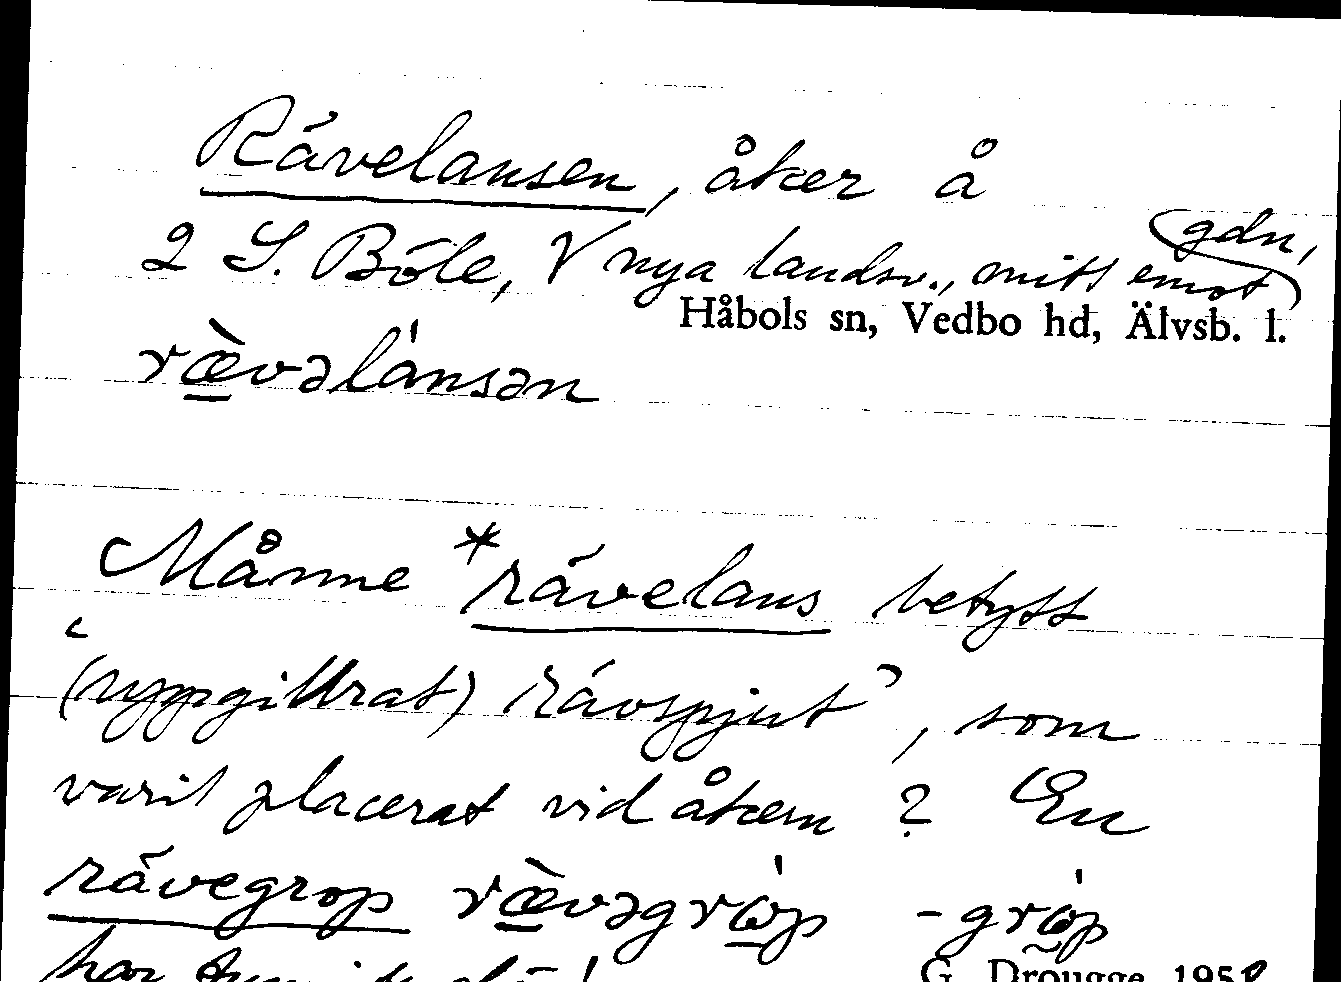 Rävelansen, åker å
2 S. Böle, V nya landsv., mitt emot gdn,
Håbols sn, Vedbo hd, Älvsb. l.
ræ̀vəlánsən
Månne *rävelans betytt
‘(uppgillrat) rävspjut’, som
varit placerat vid åkern? En
rävegrop ræ̀vəgrὼp -grὼp
har
G. Drougge 1958